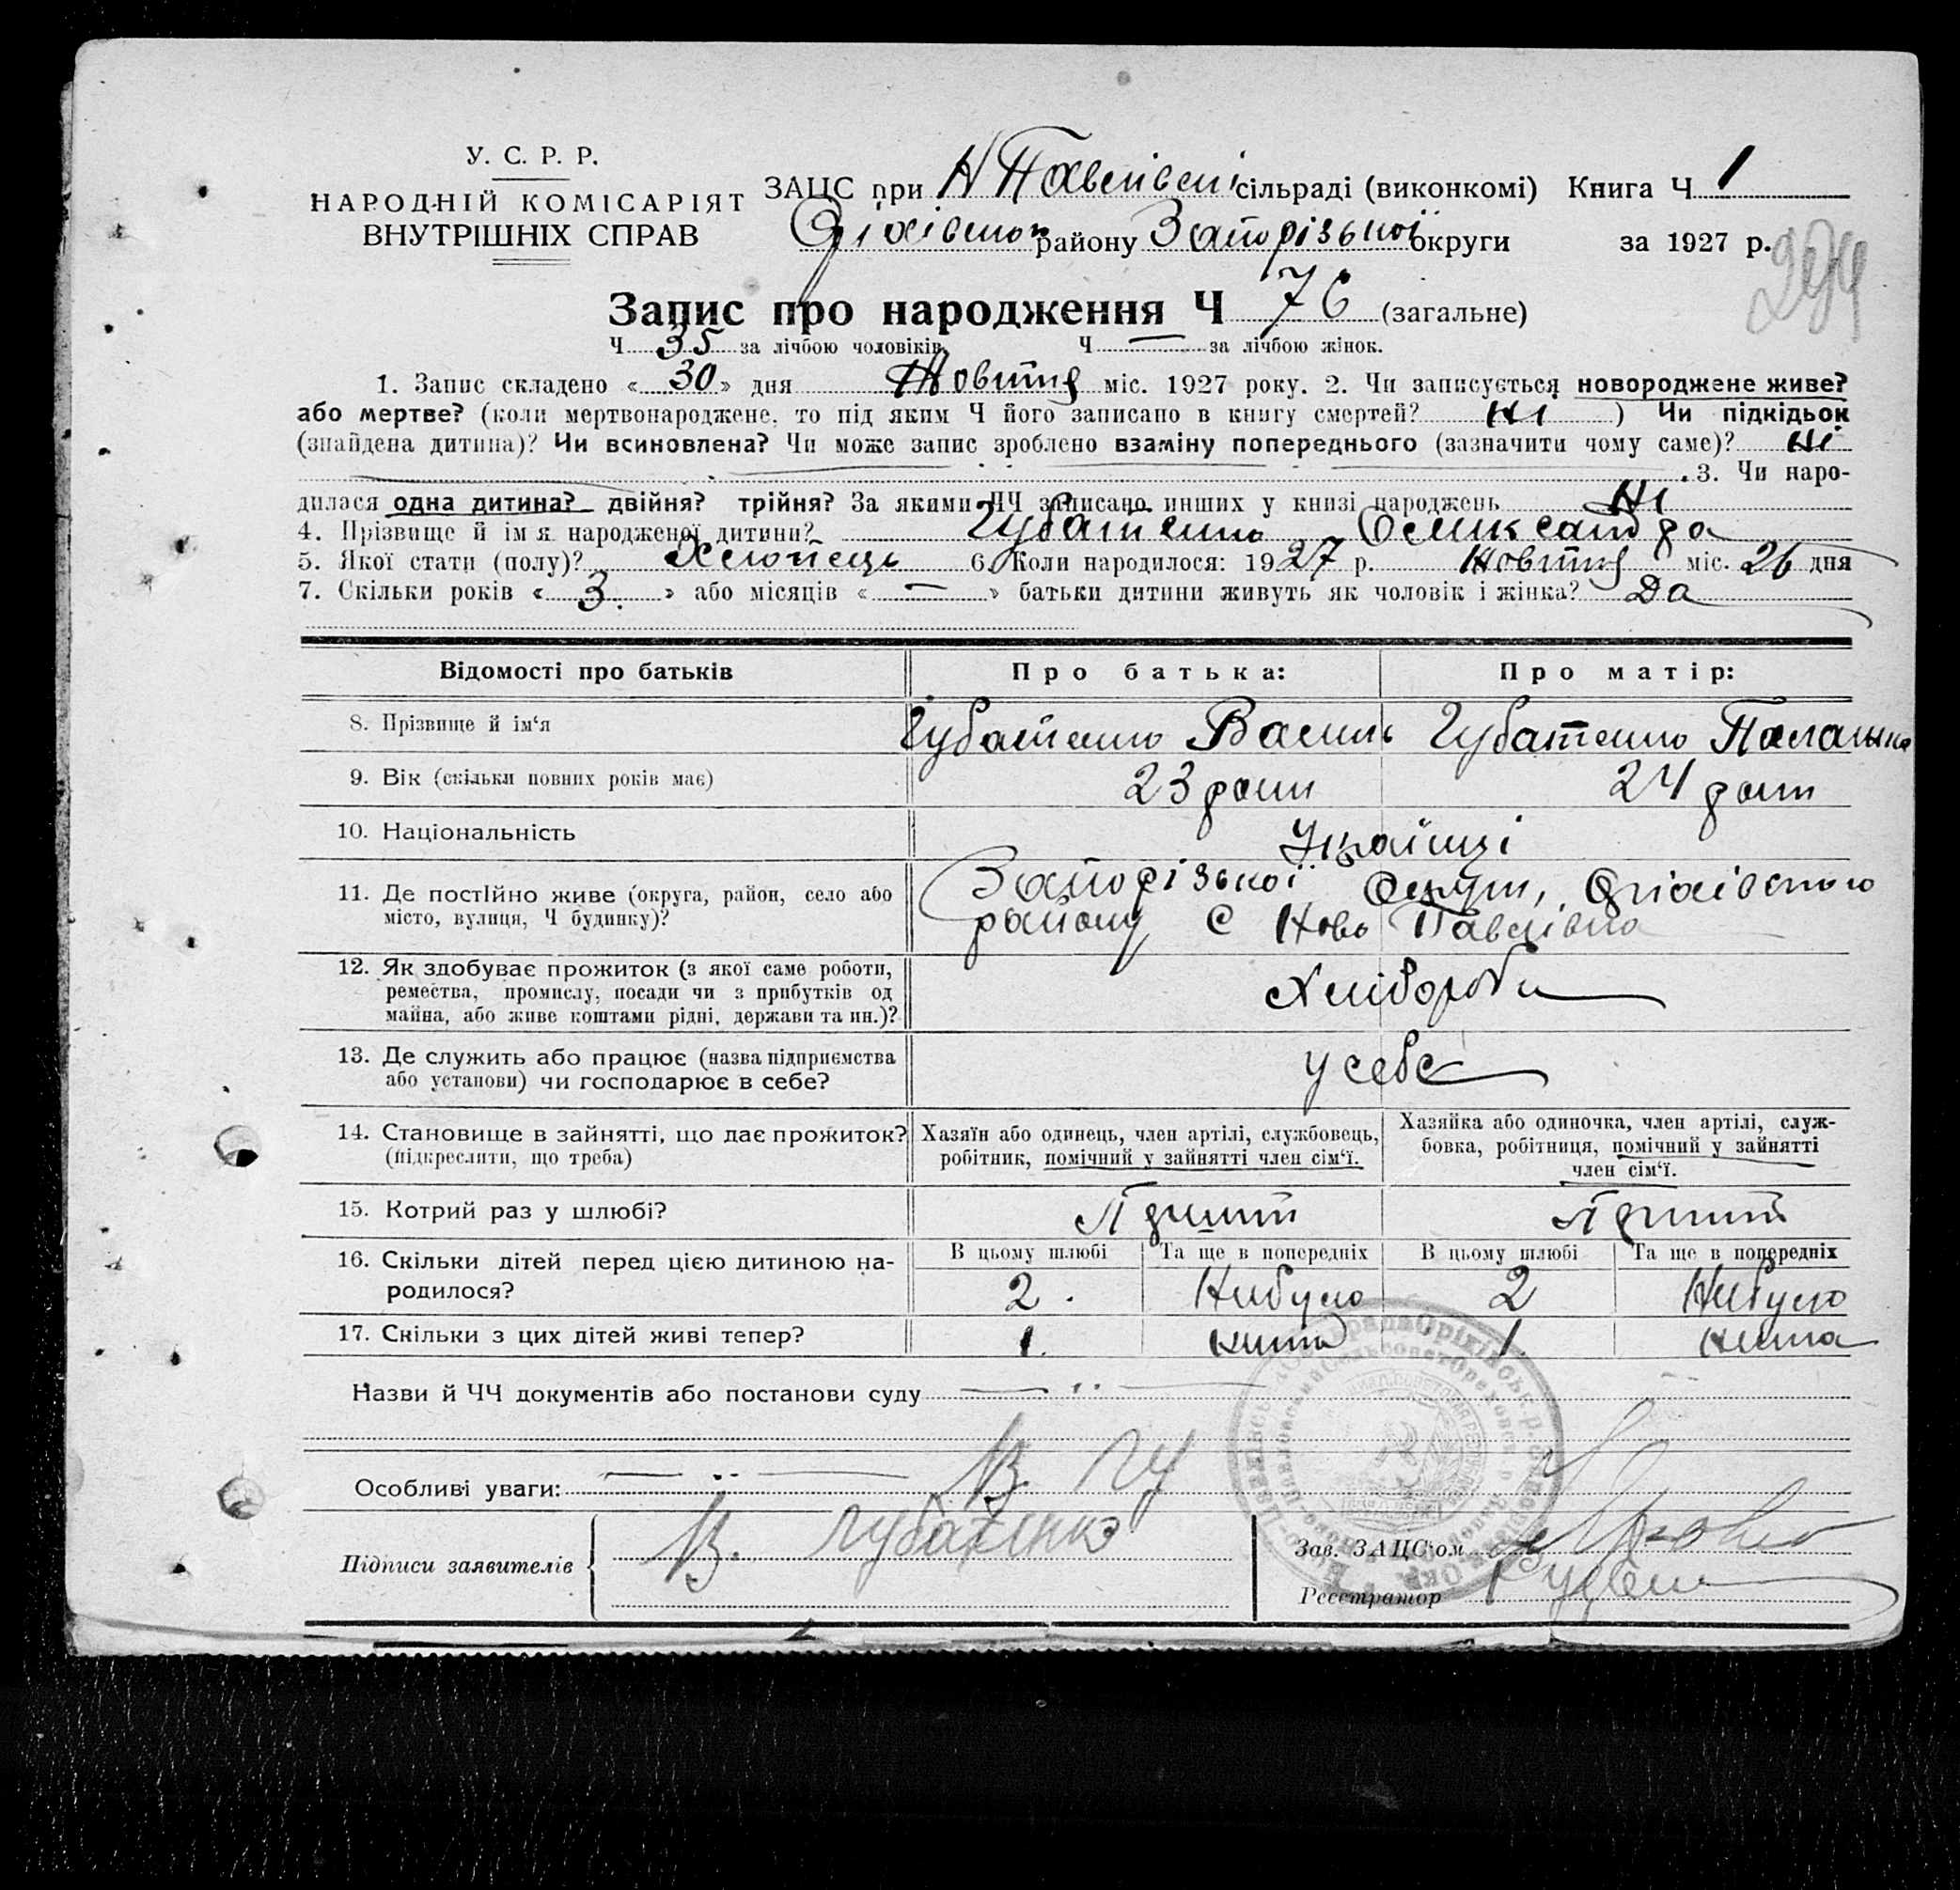 У. С. Р. Р.
НАРОДНІЙ КОМІСАРІЯТ
ВНУТРІШНІХ СПРАВ
ЗАЦС при Н Павлівські сільраді (виконкомі) Книга Ч 1
Оріхівськ району Запорізької округи за 1927 р.
Запис про народження Ч 76 (загальне)
Ч 35 за лічбою чоловіків, Ч — за лічбою жінок.
1. Запис складено « 30 » дня Жовтня міс. 1927 року. 2. Чи записується новороджене живе?
або мертве? (коли мертвонароджене, то під яким Ч його записано в книгу смертей? Ні ) Чи підкідьок
(знайдена дитина)? Чи всиновлена? Чи може запис зроблено взаміну попереднього (зазначити чому саме)? Ні
3. Чи наро-
дилася одна дитина? двійня? трійня? За якими ЧЧ записано инших у книзі народжень Ні
4. Прізвище й ім'я народженої дитини? Губатенко Олександра
5. Якої стати (полу)? Хлопець 6. Коли народилося: 1927 р. Жовтня міс. 26 дня
7. Скільки років « 3. » або місяців « — » батьки дитини живуть як чоловік і жінка? Да
Відомості про батьків Про батька: Про матір:
8. Прізвище й ім‘я Губатенко Василь Губатенко Палашка
9. Вік (скільки повних років має) 23 роки 24 роки
10. Національність Українці
11. Де постійно живе (округа, район, село або Запорізької Округи, Оріхівського
місто, вулиця, Ч будинку)? району С Ново Павлівка
12. Як здобуває прожиток (з якої саме роботи,
ремества, промислу, посади чи з прибутків од Хліборобы
майна, або живе коштами рідні, держави та ин.)?
13. Де служить або працює (назва підприємства
або установи) чи господарює в себе? у себе
14. Становище в зайнятті, що дає прожиток? Хазяїн або одинець, член артілі, службовець, Хазяйка або одиночка, член артілі, служ-
(підкреслити, що треба) робітник, помічний у зайнятті член сім‘ї. бовка, робітниця, помічний у зайнятті
член сім‘ї.
15. Котрий раз у шлюбі?
В цьому шлюбі Та ще в попередніх В цьому шлюбі Та ще в попередніх
16. Скільки дітей перед цією дитиною на-
родилося? 2. Нибуло 2 Нибуло
17. Скільки з цих дітей живі тепер? 1. нима 1. нима
Назви й ЧЧ документів або постанови суду
Особливі уваги: В. Гу
Підписи заявителів В. Губатенко
Зав. ЗАЦС‘ом
Реєстратор